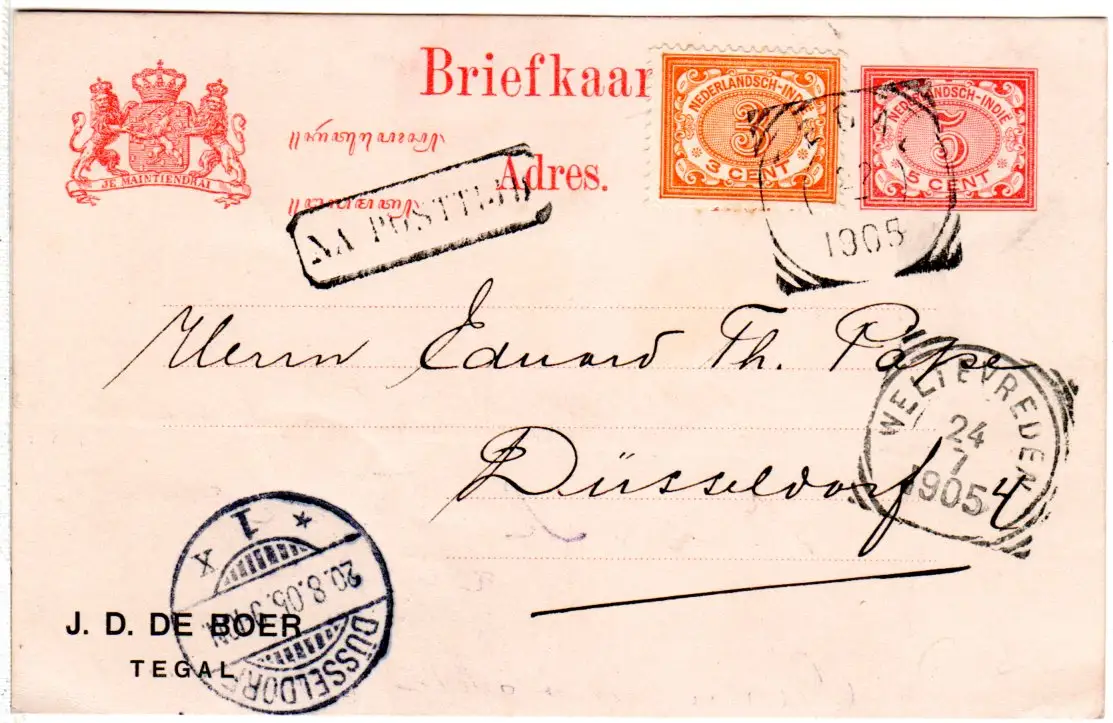 Briefkaar
JE MAINTIENDRAI
Adres.
NA POSTTIJD
NEDERLANDSCH-INDIE
3
3 CENT
NEDERLANDSCH-INDIE
5
5 CENT
22
1905
Herrn Eduard Th. Pape
Düsseldorf 4
WELTEVREDEN
24
7
1905
* 1 x
20.8.05.
DÜSSELDORF
J. D. DE BOER
TEGAL